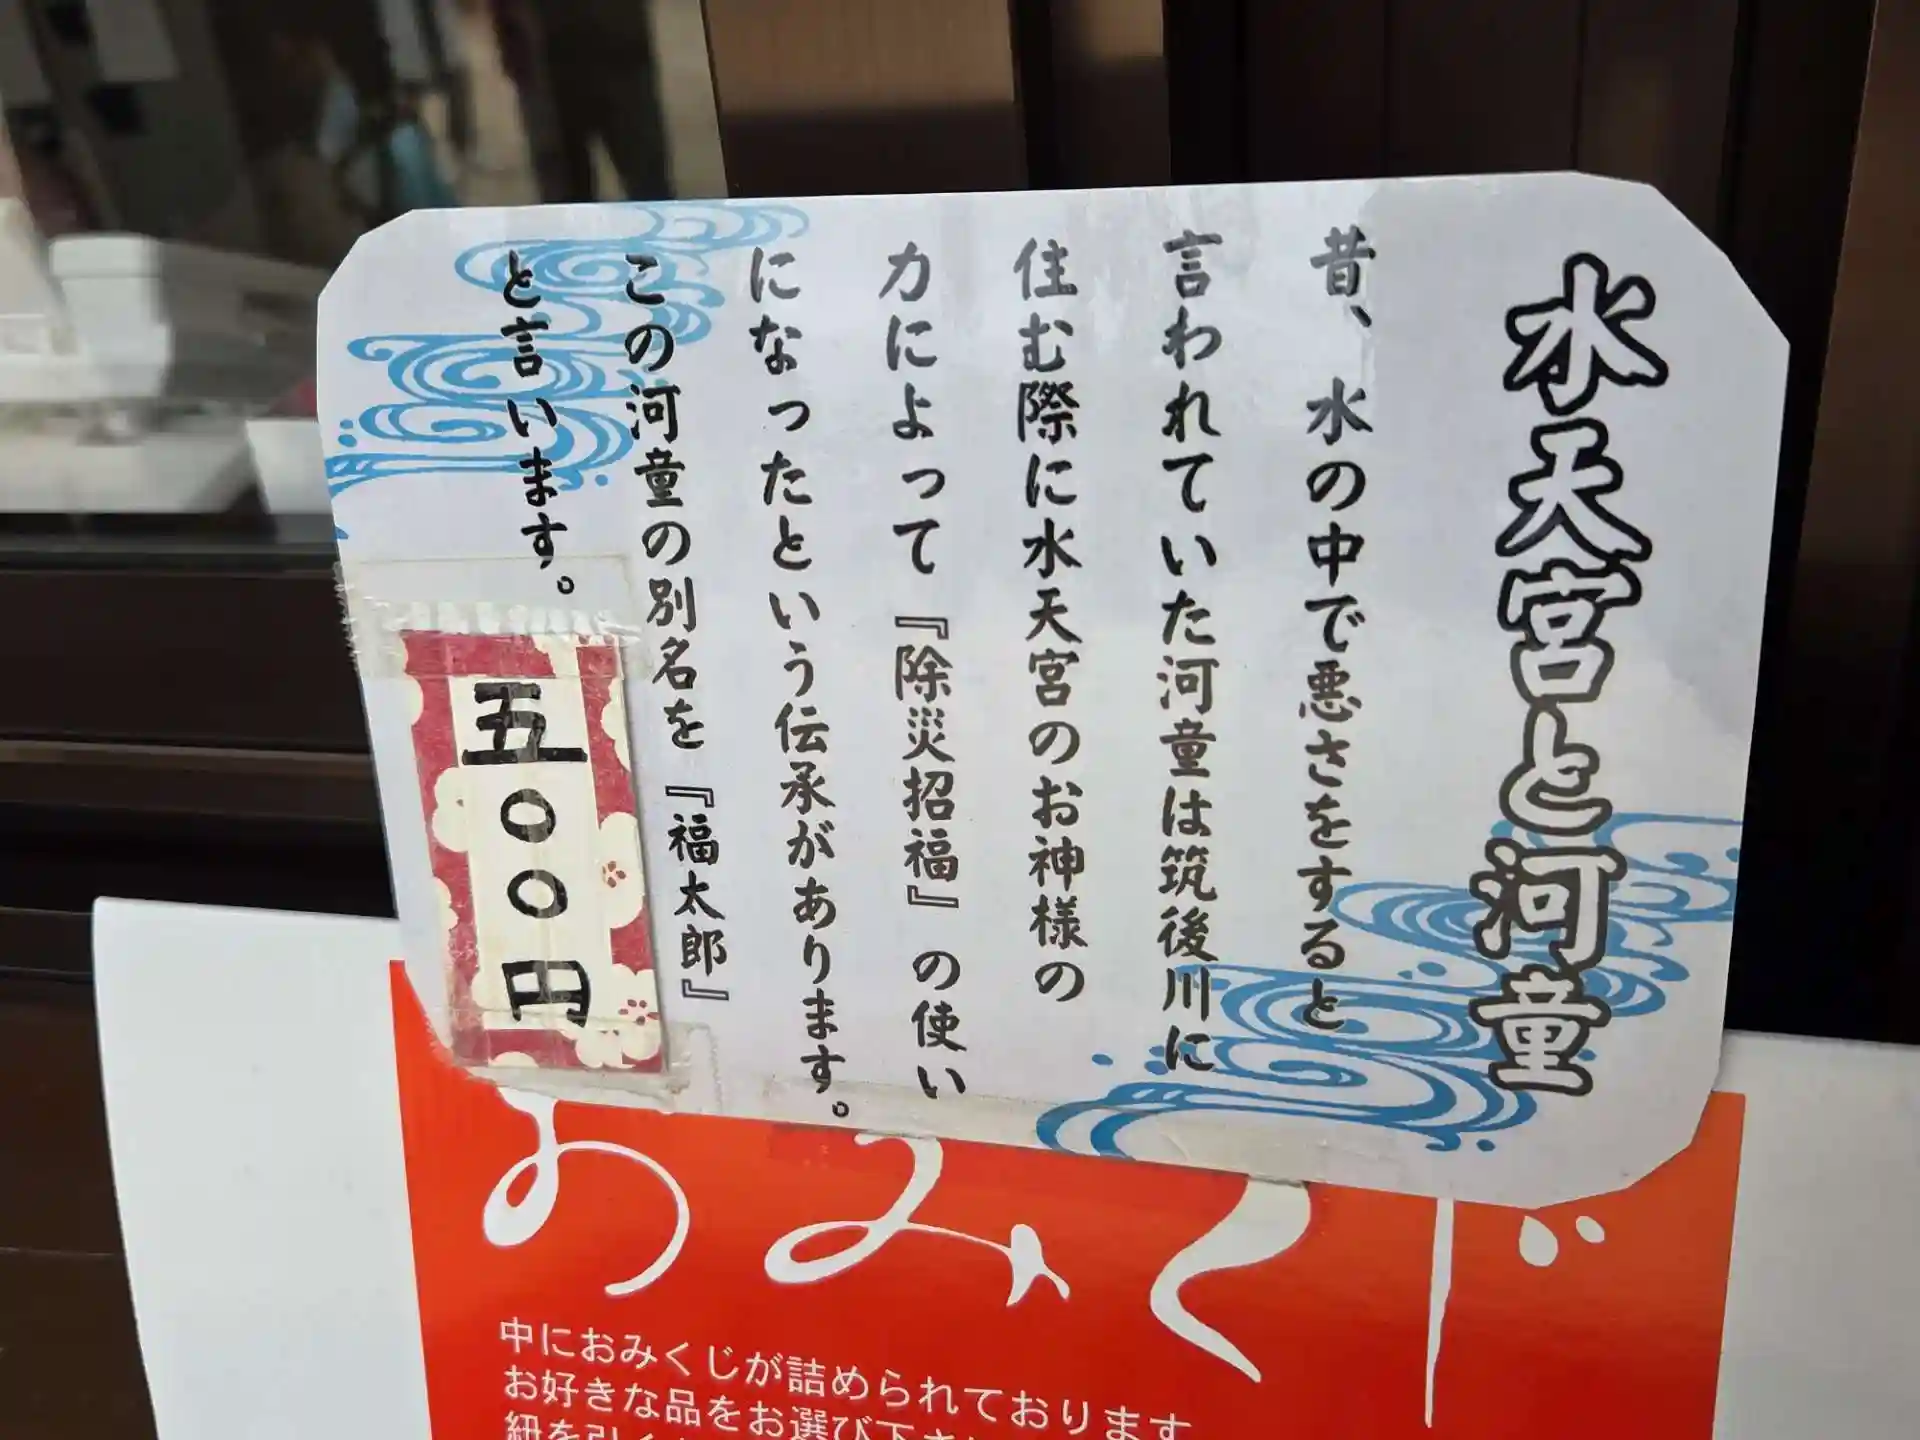 水天宮と河童
昔、水の中で悪さをすると
言われていた河童は筑後川に
住む際に水天宮のお神様の
力によって『除災招福』の使い
になったという伝承があります。
この河童の別名を『福太郎』
と言います。
五〇〇円
おみくじ
中におみくじが詰められております
お好きな品をお選び下さ
紐を引く